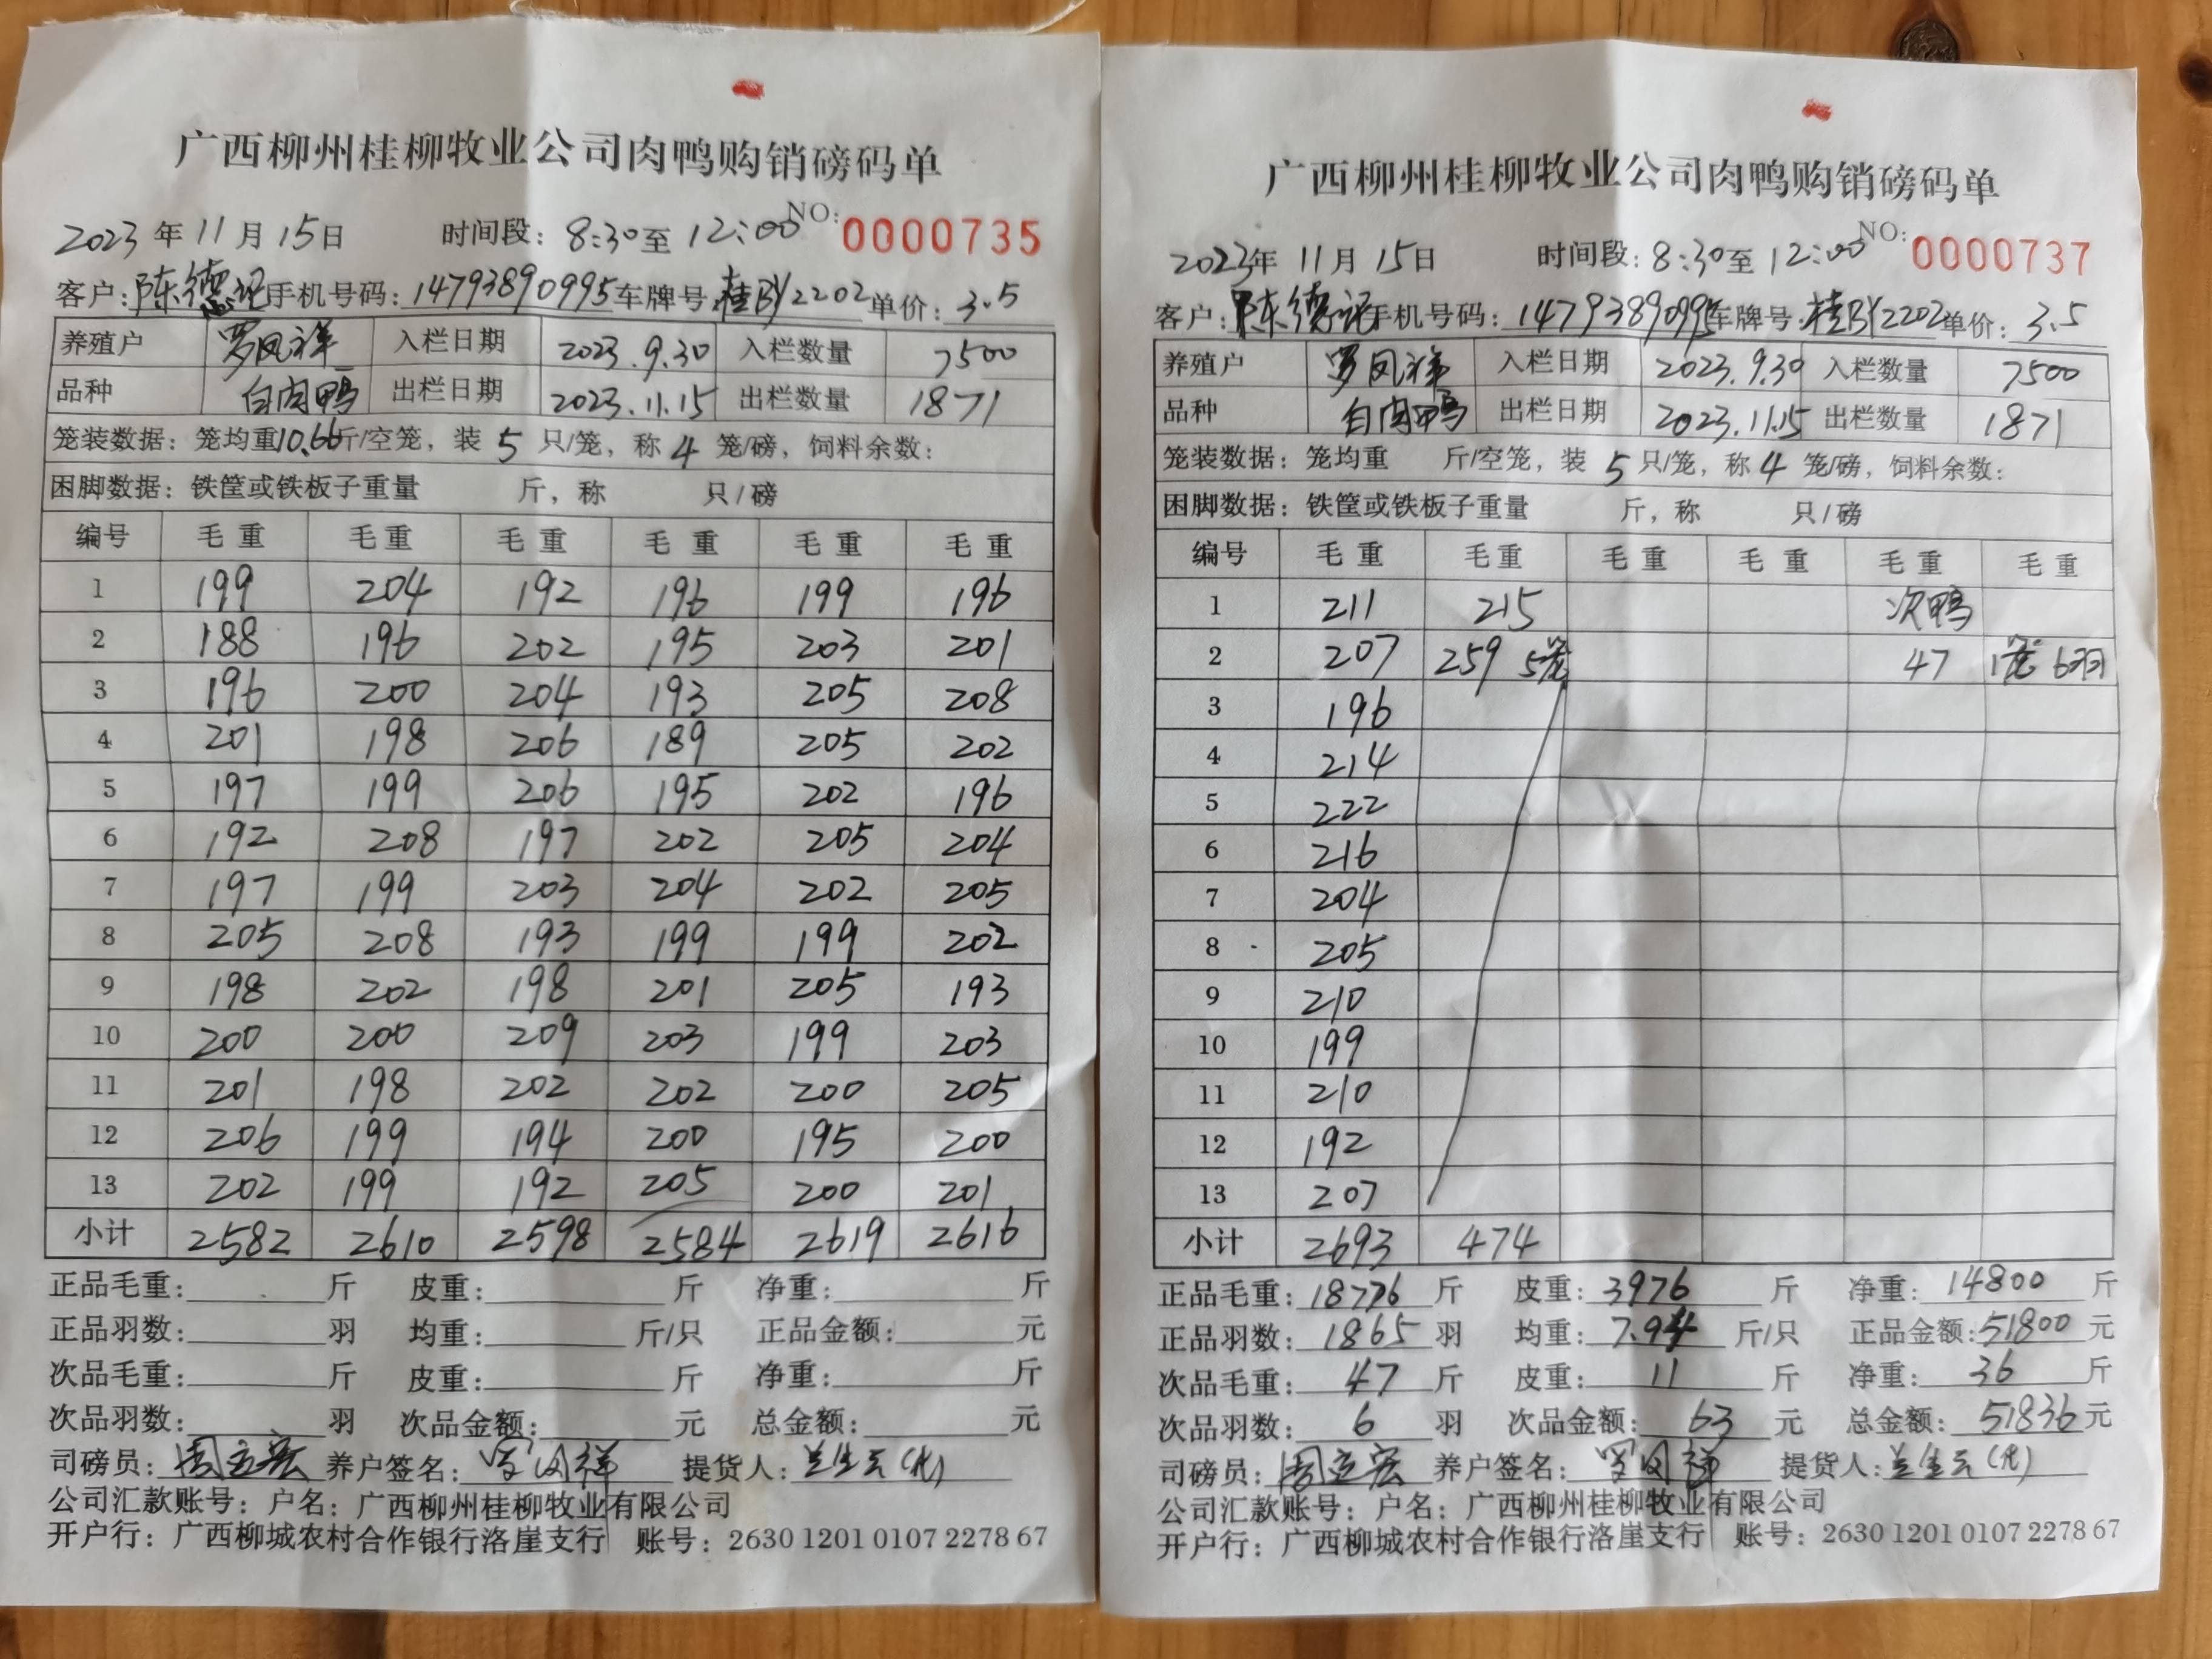 广西柳州桂柳牧业公司肉鸭购销磅码单
2023年11月15日 时间段：8:30至12:00 NO: 0000735
客户：陈德记 手机号码：14793890995 车牌号：桂BY2202 单价：3.5
养殖户 罗凤祥 入栏日期 2023.9.30 入栏数量 7500
品种 白肉鸭 出栏日期 2023.11.15 出栏数量 1871
笼装数据：笼均重10.66斤/空笼，装5只/笼，称4笼/磅，饲料余数：
困脚数据：铁筐或铁板子重量 斤，称 只/磅
编号 毛重 毛重 毛重 毛重 毛重 毛重
1 199 204 192 196 199 196
2 188 196 202 195 203 201
3 196 200 204 193 205 208
4 201 198 206 189 205 202
5 197 199 206 195 202 196
6 192 208 197 202 205 204
7 197 199 203 204 202 205
8 205 208 193 199 199 202
9 198 202 198 201 205 193
10 200 200 209 203 199 203
11 201 198 202 202 200 205
12 206 199 194 200 195 200
13 202 199 192 205 200 201
小计 2582 2610 2598 2584 2619 2616
正品毛重： 斤 皮重： 斤 净重： 斤
正品羽数： 羽 均重： 斤/只 正品金额： 元
次品毛重： 斤 皮重： 斤 净重： 斤
次品羽数： 羽 次品金额： 元 总金额： 元
司磅员：周立宏 养户签名：罗凤祥 提货人：兰生云(代)
公司汇款账号：户名：广西柳州桂柳牧业有限公司
开户行：广西柳城农村合作银行洛崖支行 账号：2630 1201 0107 2278 67
广西柳州桂柳牧业公司肉鸭购销磅码单
2023年11月15日 时间段：8:30至12:00 NO: 0000737
客户：陈德记 手机号码：14793890995 车牌号：桂BY2202 单价：3.5
养殖户 罗凤祥 入栏日期 2023.9.30 入栏数量 7500
品种 白肉鸭 出栏日期 2023.11.15 出栏数量 1871
笼装数据：笼均重 斤/空笼，装5只/笼，称4笼/磅，饲料余数：
困脚数据：铁筐或铁板子重量 斤，称 只/磅
编号 毛重 毛重 毛重 毛重 毛重 毛重
1 211 215 次鸭
2 207 259 5笼 47 1笼6羽
3 196
4 214
5 222
6 216
7 204
8 205
9 210
10 199
11 210
12 192
13 207
小计 2693 474
正品毛重：18776斤 皮重：3976斤 净重：14800斤
正品羽数：1865羽 均重：7.94斤/只 正品金额：51800元
次品毛重：47斤 皮重：11斤 净重：36斤
次品羽数：6羽 次品金额：63元 总金额：51836元
司磅员：周立宏 养户签名：罗凤祥 提货人：兰生云(代)
公司汇款账号：户名：广西柳州桂柳牧业有限公司
开户行：广西柳城农村合作银行洛崖支行 账号：2630 1201 0107 2278 67